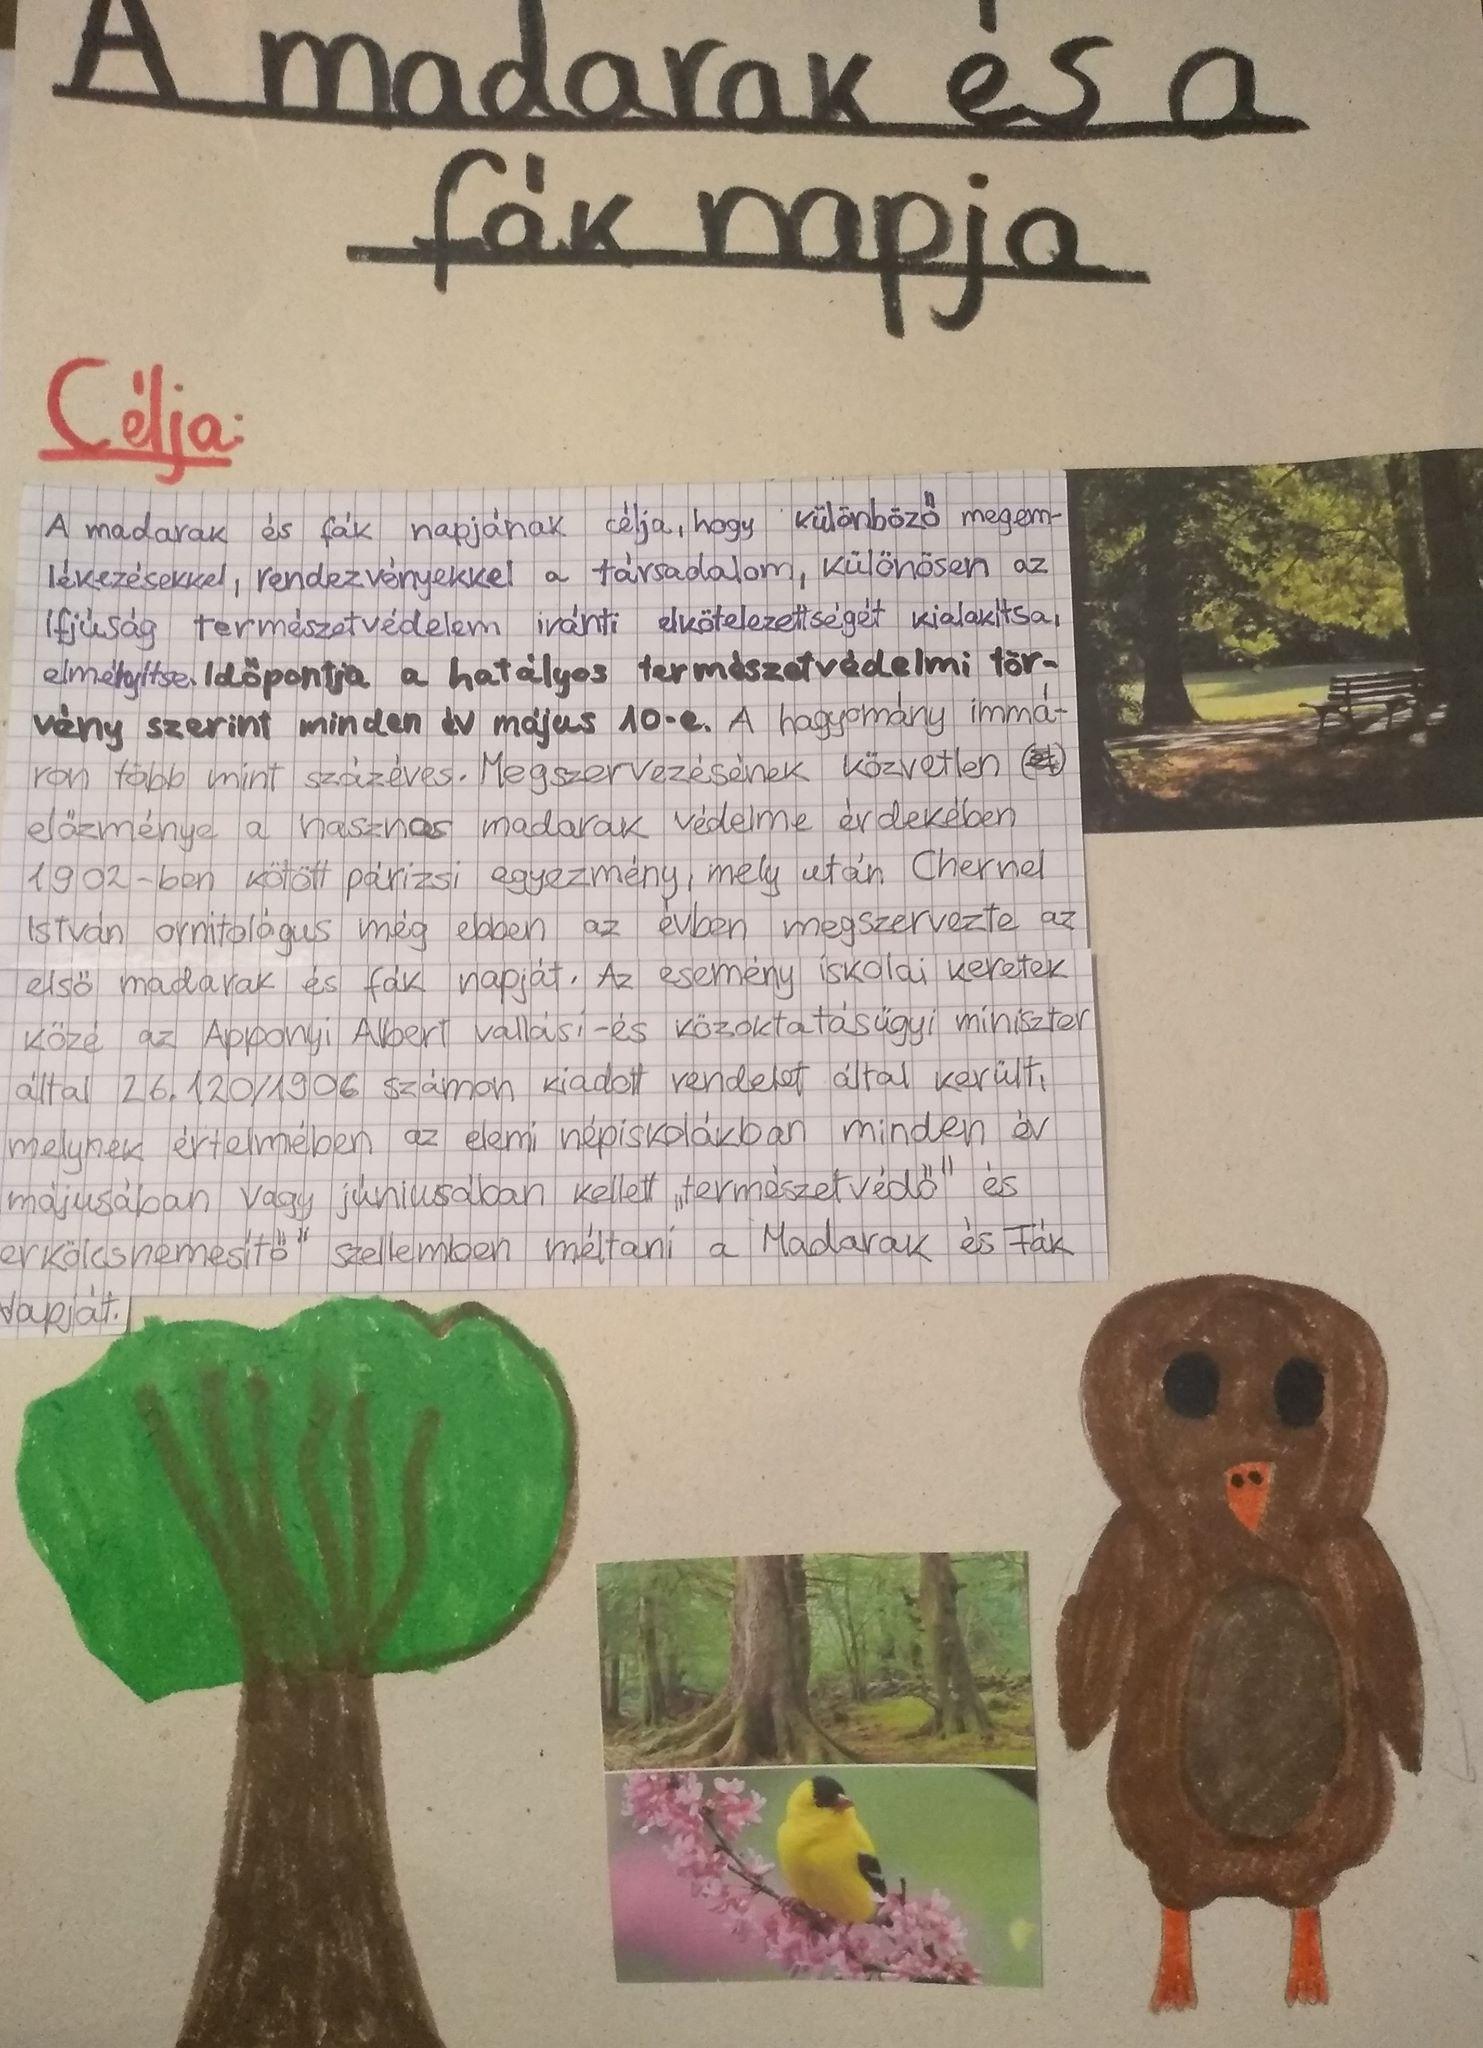 A madarak és a
fák napja
Célja:
A madarak és fák napjának célja, hogy különböző megem-
lékezésekkel, rendezvényekkel a társadalom, különösen az
ifjúság természetvédelem iránti elkötelezettségét kialakítsa,
elmélyítse. Időpontja a hatályos természetvédelmi tör-
vény szerint minden év május 10-e. A hagyomány immá-
ron több mint százéves. Megszervezésének közvetlen
előzménye a hasznos madarak védelme érdekében
1902-ben kötött párizsi egyezmény, mely után Chernel
István ornitológus még ebben az évben megszervezte az
első madarak és fák napját. Az esemény iskolai keretek
közé az Apponyi Albert vallási-és közoktatásügyi miniszter
által 26.120/1906 számon kiadott rendelet által került,
melynek értelmében az elemi népiskolákban minden év
májusában vagy júniusában kellett „természetvédő" és
erkölcsnemesítő" szellemben méltani a Madarak és Fák
Napját.